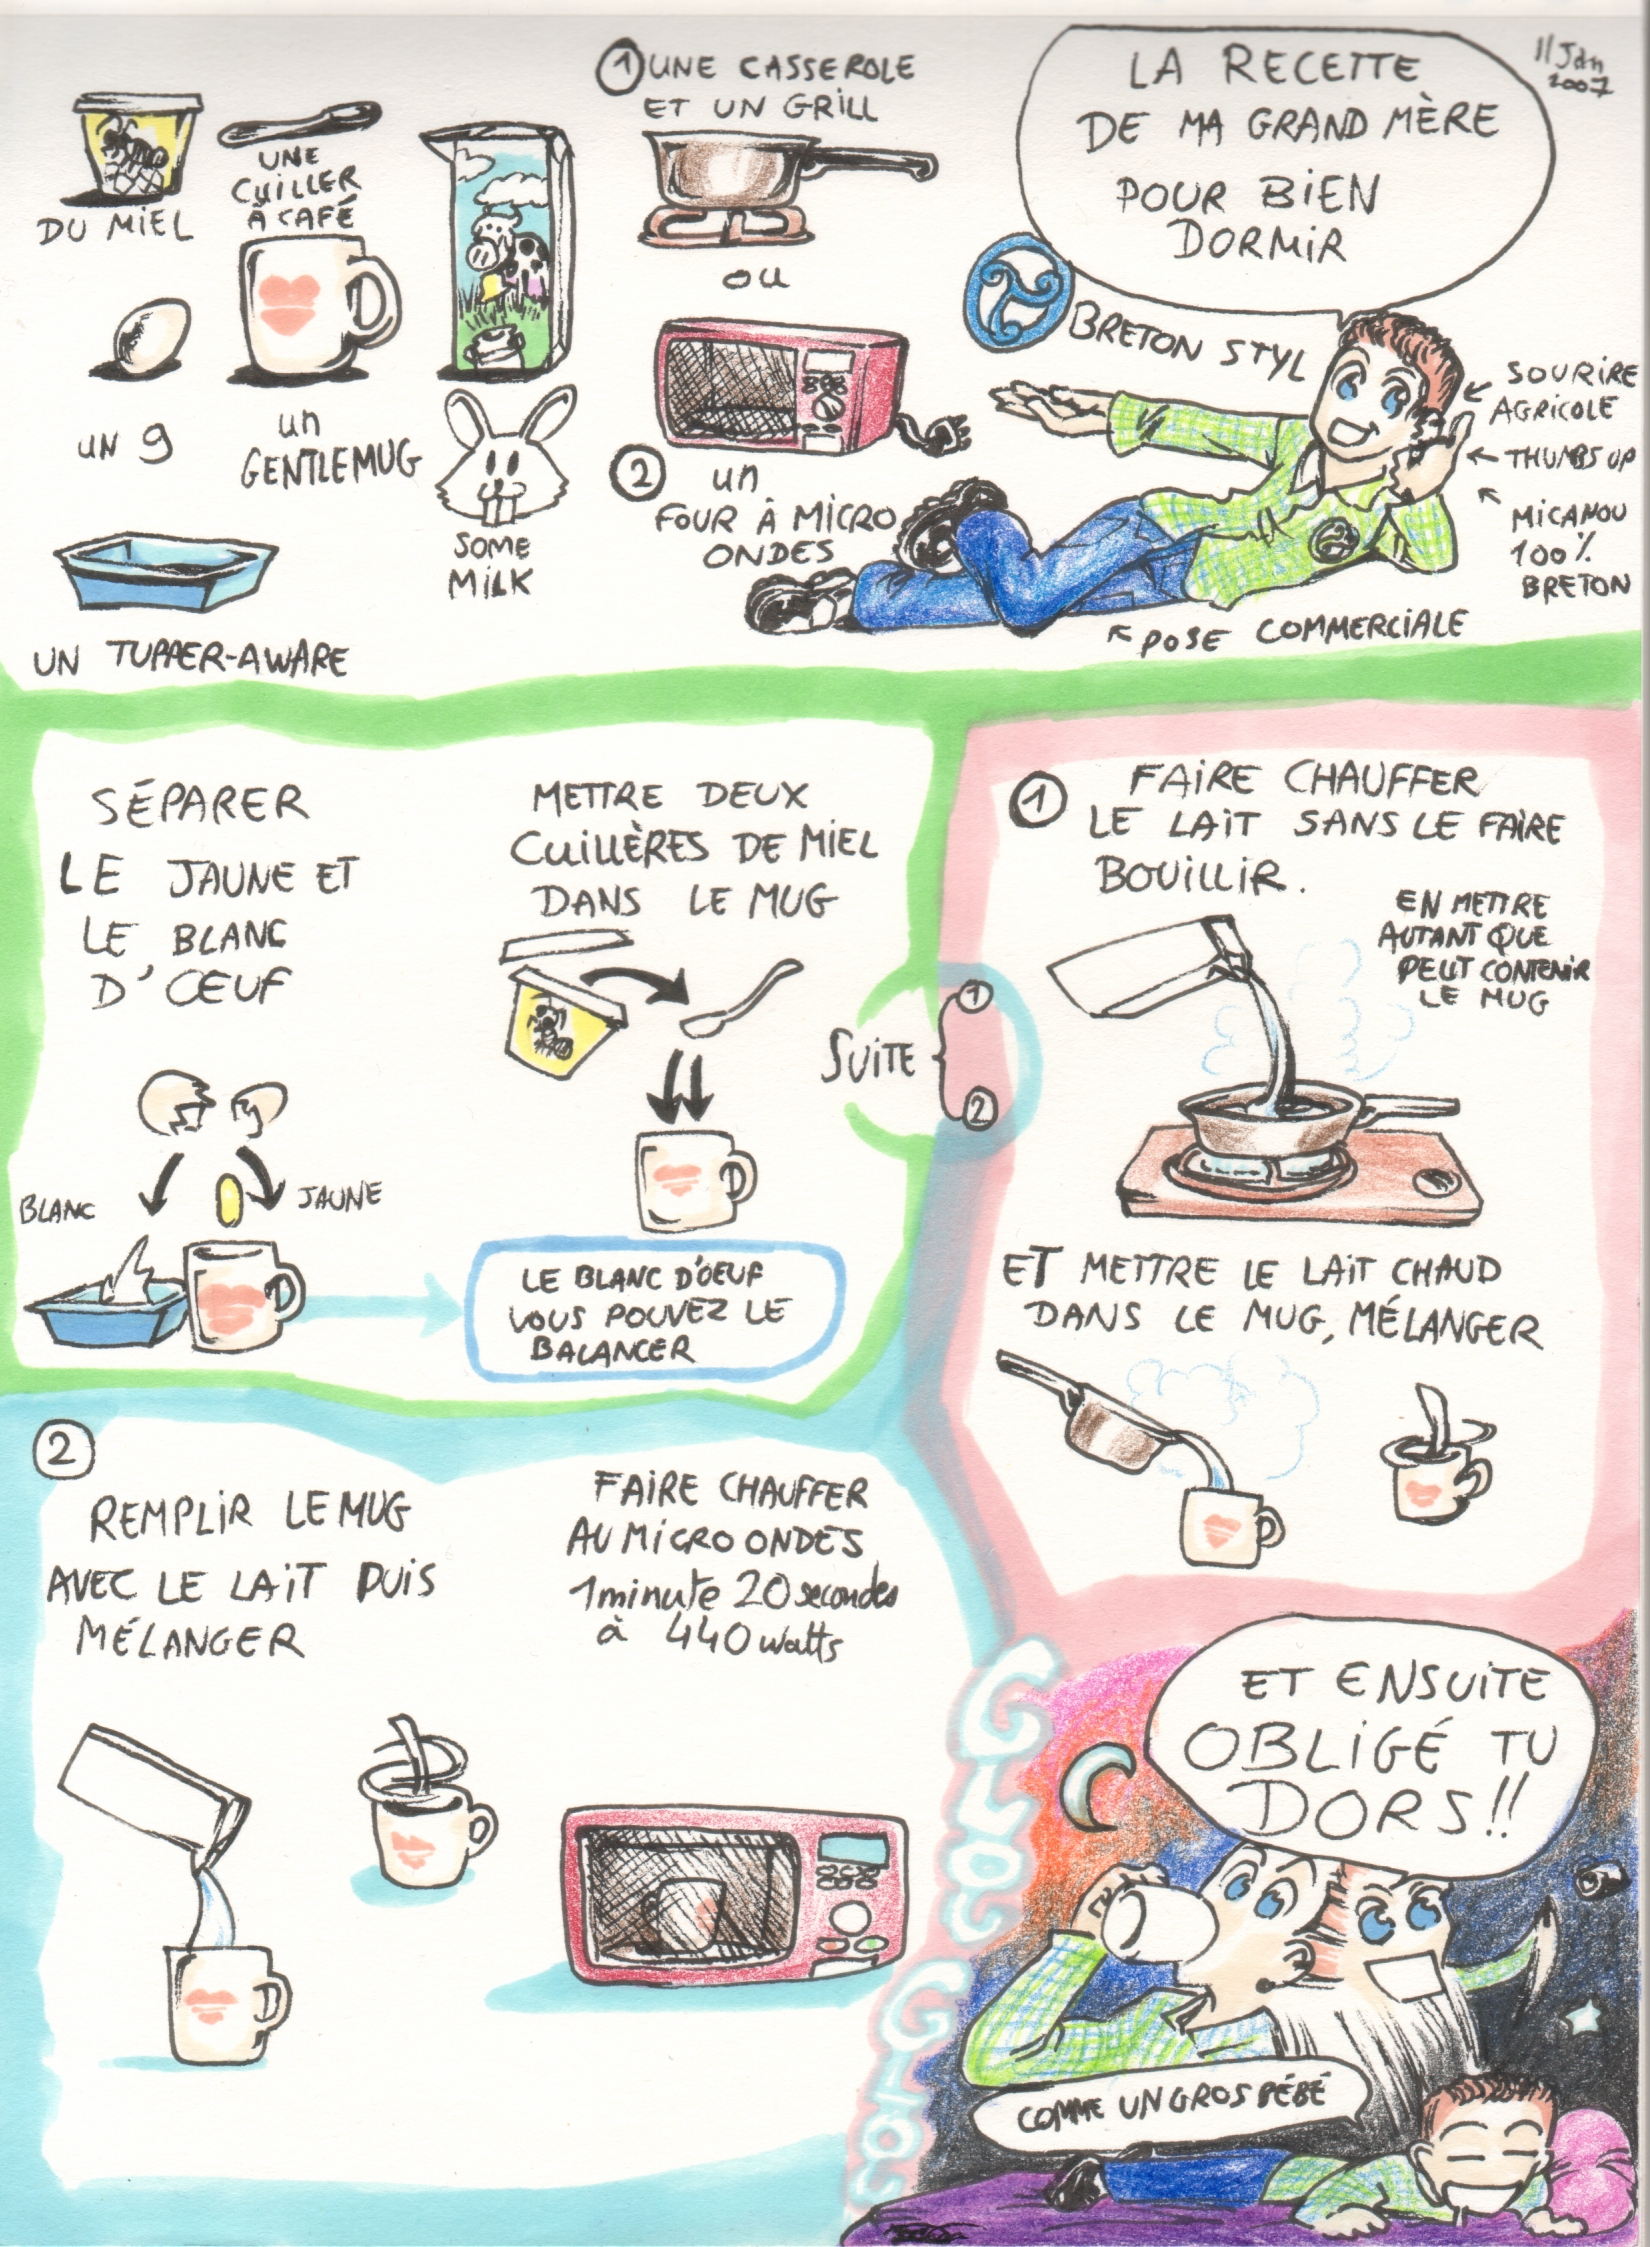 11 Jan
2007
LA RECETTE
DE MA GRAND MÈRE
POUR BIEN
DORMIR
BRETON STYL
SOURIRE
AGRICOLE
THUMBS UP
MICAMOU
100%
BRETON
POSE COMMERCIALE
DU MIEL
UNE
CUILLER
À CAFÉ
UN 9
un
GENTLEMUG
SOME
MILK
UN TUPPER-AWARE
1 UNE CASSEROLE
ET UN GRILL
OU
2 un
FOUR À MICRO
ONDES
SÉPARER
LE JAUNE ET
LE BLANC
D'ŒUF
BLANC
JAUNE
METTRE DEUX
CUILLÈRES DE MIEL
DANS LE MUG
LE BLANC D'OEUF
VOUS POUVEZ LE
BALANCER
SUITE
1
2
1 FAIRE CHAUFFER
LE LAIT SANS LE FAIRE
BOUILLIR.
EN METTRE
AUTANT QUE
PEUT CONTENIR
LE MUG
ET METTRE LE LAIT CHAUD
DANS LE MUG, MÉLANGER
2
REMPLIR LE MUG
AVEC LE LAIT PUIS
MÉLANGER
FAIRE CHAUFFER
AU MICRO ONDES
1 minute 20 secondes
à 440 watts
GLOU
GLOU
ET ENSUITE
OBLIGÉ TU
DORS!!
COMME UN GROS BÉBÉ